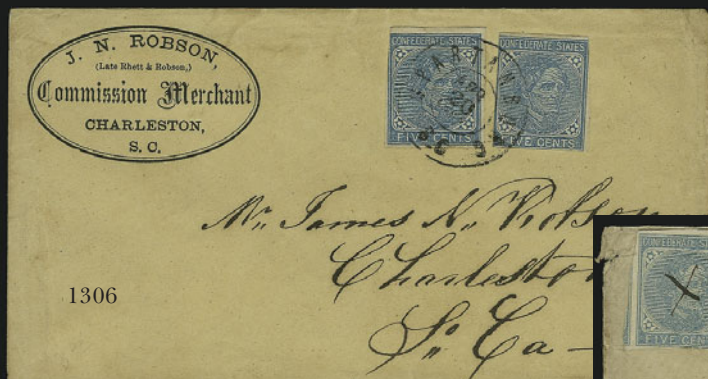 J. N. ROBSON,
(Late Rhett & Robson,)
Commission Merchant
CHARLESTON,
S. C.
CONFEDERATE STATES
FIVE CENTS
CONFEDERATE STATES
FIVE CENTS
SPARTANBURG
APR
20
S.C.
Mr. James N. Robson
Charleston
So. Ca -
1306
CONFEDERATE STA
FIVE CEN
X